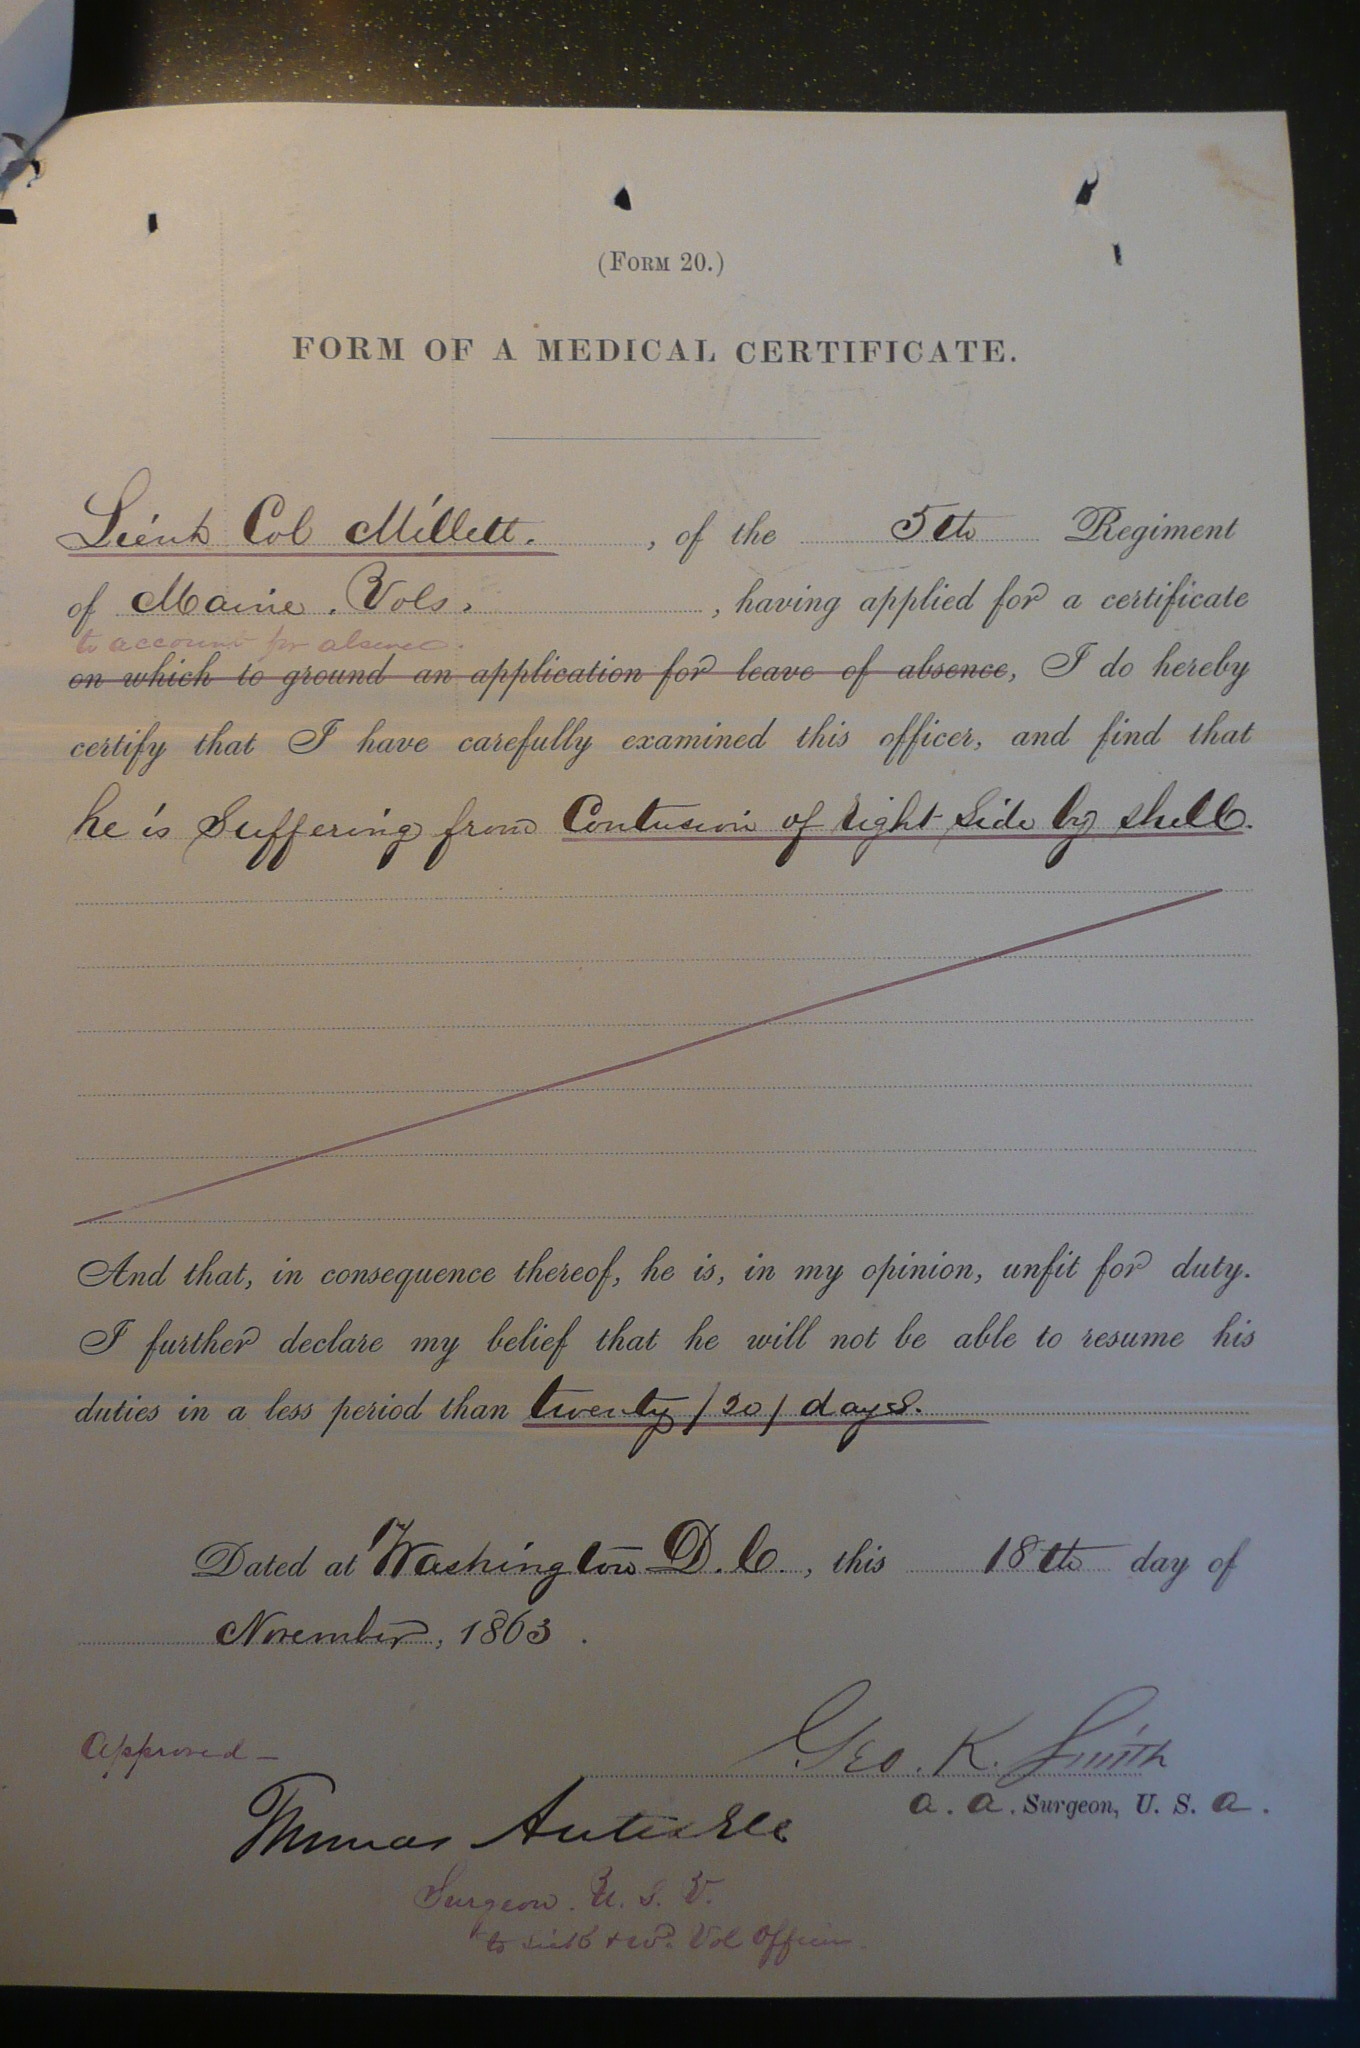 (Form 20.)
FORM OF A MEDICAL CERTIFICATE.
Lieut Col Millett. , of the 5th Regiment
of Maine. Vols. , having applied for a certificate
to account for absence.
on which to ground an application for leave of absence, I do hereby
certify that I have carefully examined this officer, and find that
he is Suffering from Contusion of right Side by shell.
And that, in consequence thereof, he is, in my opinion, unfit for duty.
I further declare my belief that he will not be able to resume his
duties in a less period than twenty /20/ days.
Dated at Washington D. C., this 18th day of
November, 1863.
Approved— Geo. K. Smith
a. a. Surgeon, U. S. a.
Thomas Antisell
Surgeon. U. S. V.
to sick & wd. Vol Officers.